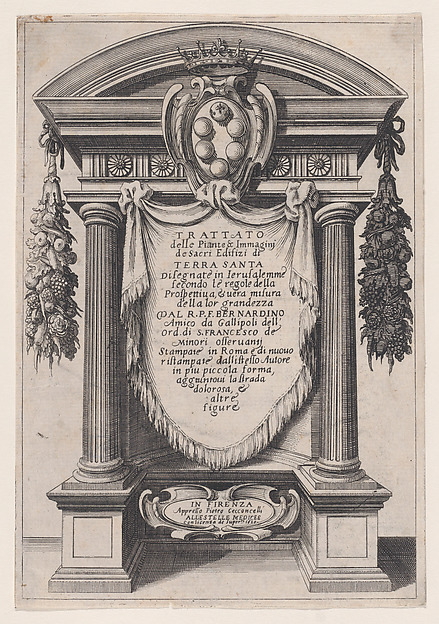 TRATTATO
delle Piante & Immagini
de Sacri Edifizi di
TERRA SANTA
Disegnate in Ierusalemme
secondo le regole della
Prospettiua, & uera misura
della lor grandezza
DAL R.P.F. BERNARDINO
Amico da Gallipoli dell'
ord. di S. FRANCESCO de
Minori osseruanti
Stampate in Roma e di nuouo
ristampate dallistesso Autore
in piu piccola forma,
aggiuntoui la strada
dolorosa, e
altre
figure
IN FIRENZA
Appresso Pietro Cecconcelli
ALLE STELLE MEDICEE
Con licenza de Superiori